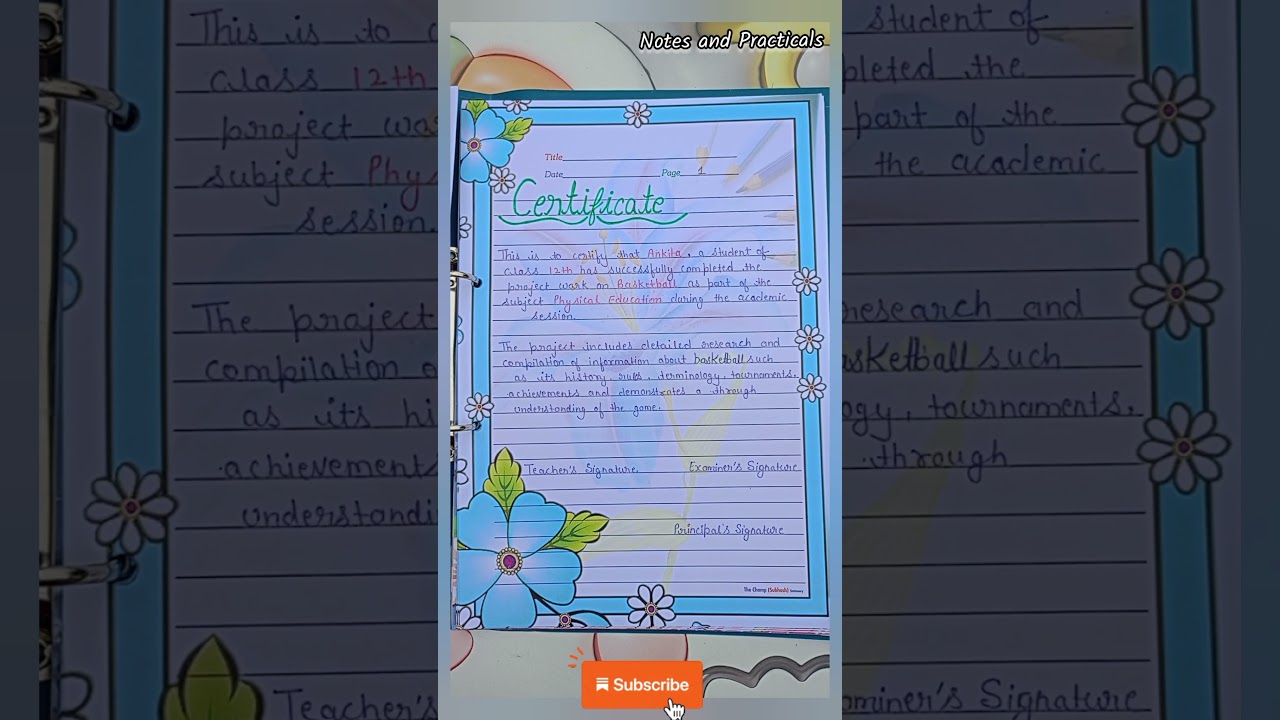 Notes and Practicals
Title
Date Page 1
Certificate
This is to certify that Ankita, a student of
class 12th has successfully completed the
project work on Basketball as part of the
subject Physical Education during the academic
session.
The project includes detailed research and
compilation of information about basketball such
as its history, rules, terminology, tournaments,
achievements and demonstrates a through
understanding of the game.
Teacher's Signature. Examiner's Signature
Principal's Signature
The Champ (Subhash) Stationery
Subscribe
This is to
class 12th
project was
subject Phys
session.
The project
compilation o
as its hi
achievement
understandi
Teacher's
student of
pleted the
part of the
the academic
research and
asketball such
ogy, tournaments,
through
aminer's Signature